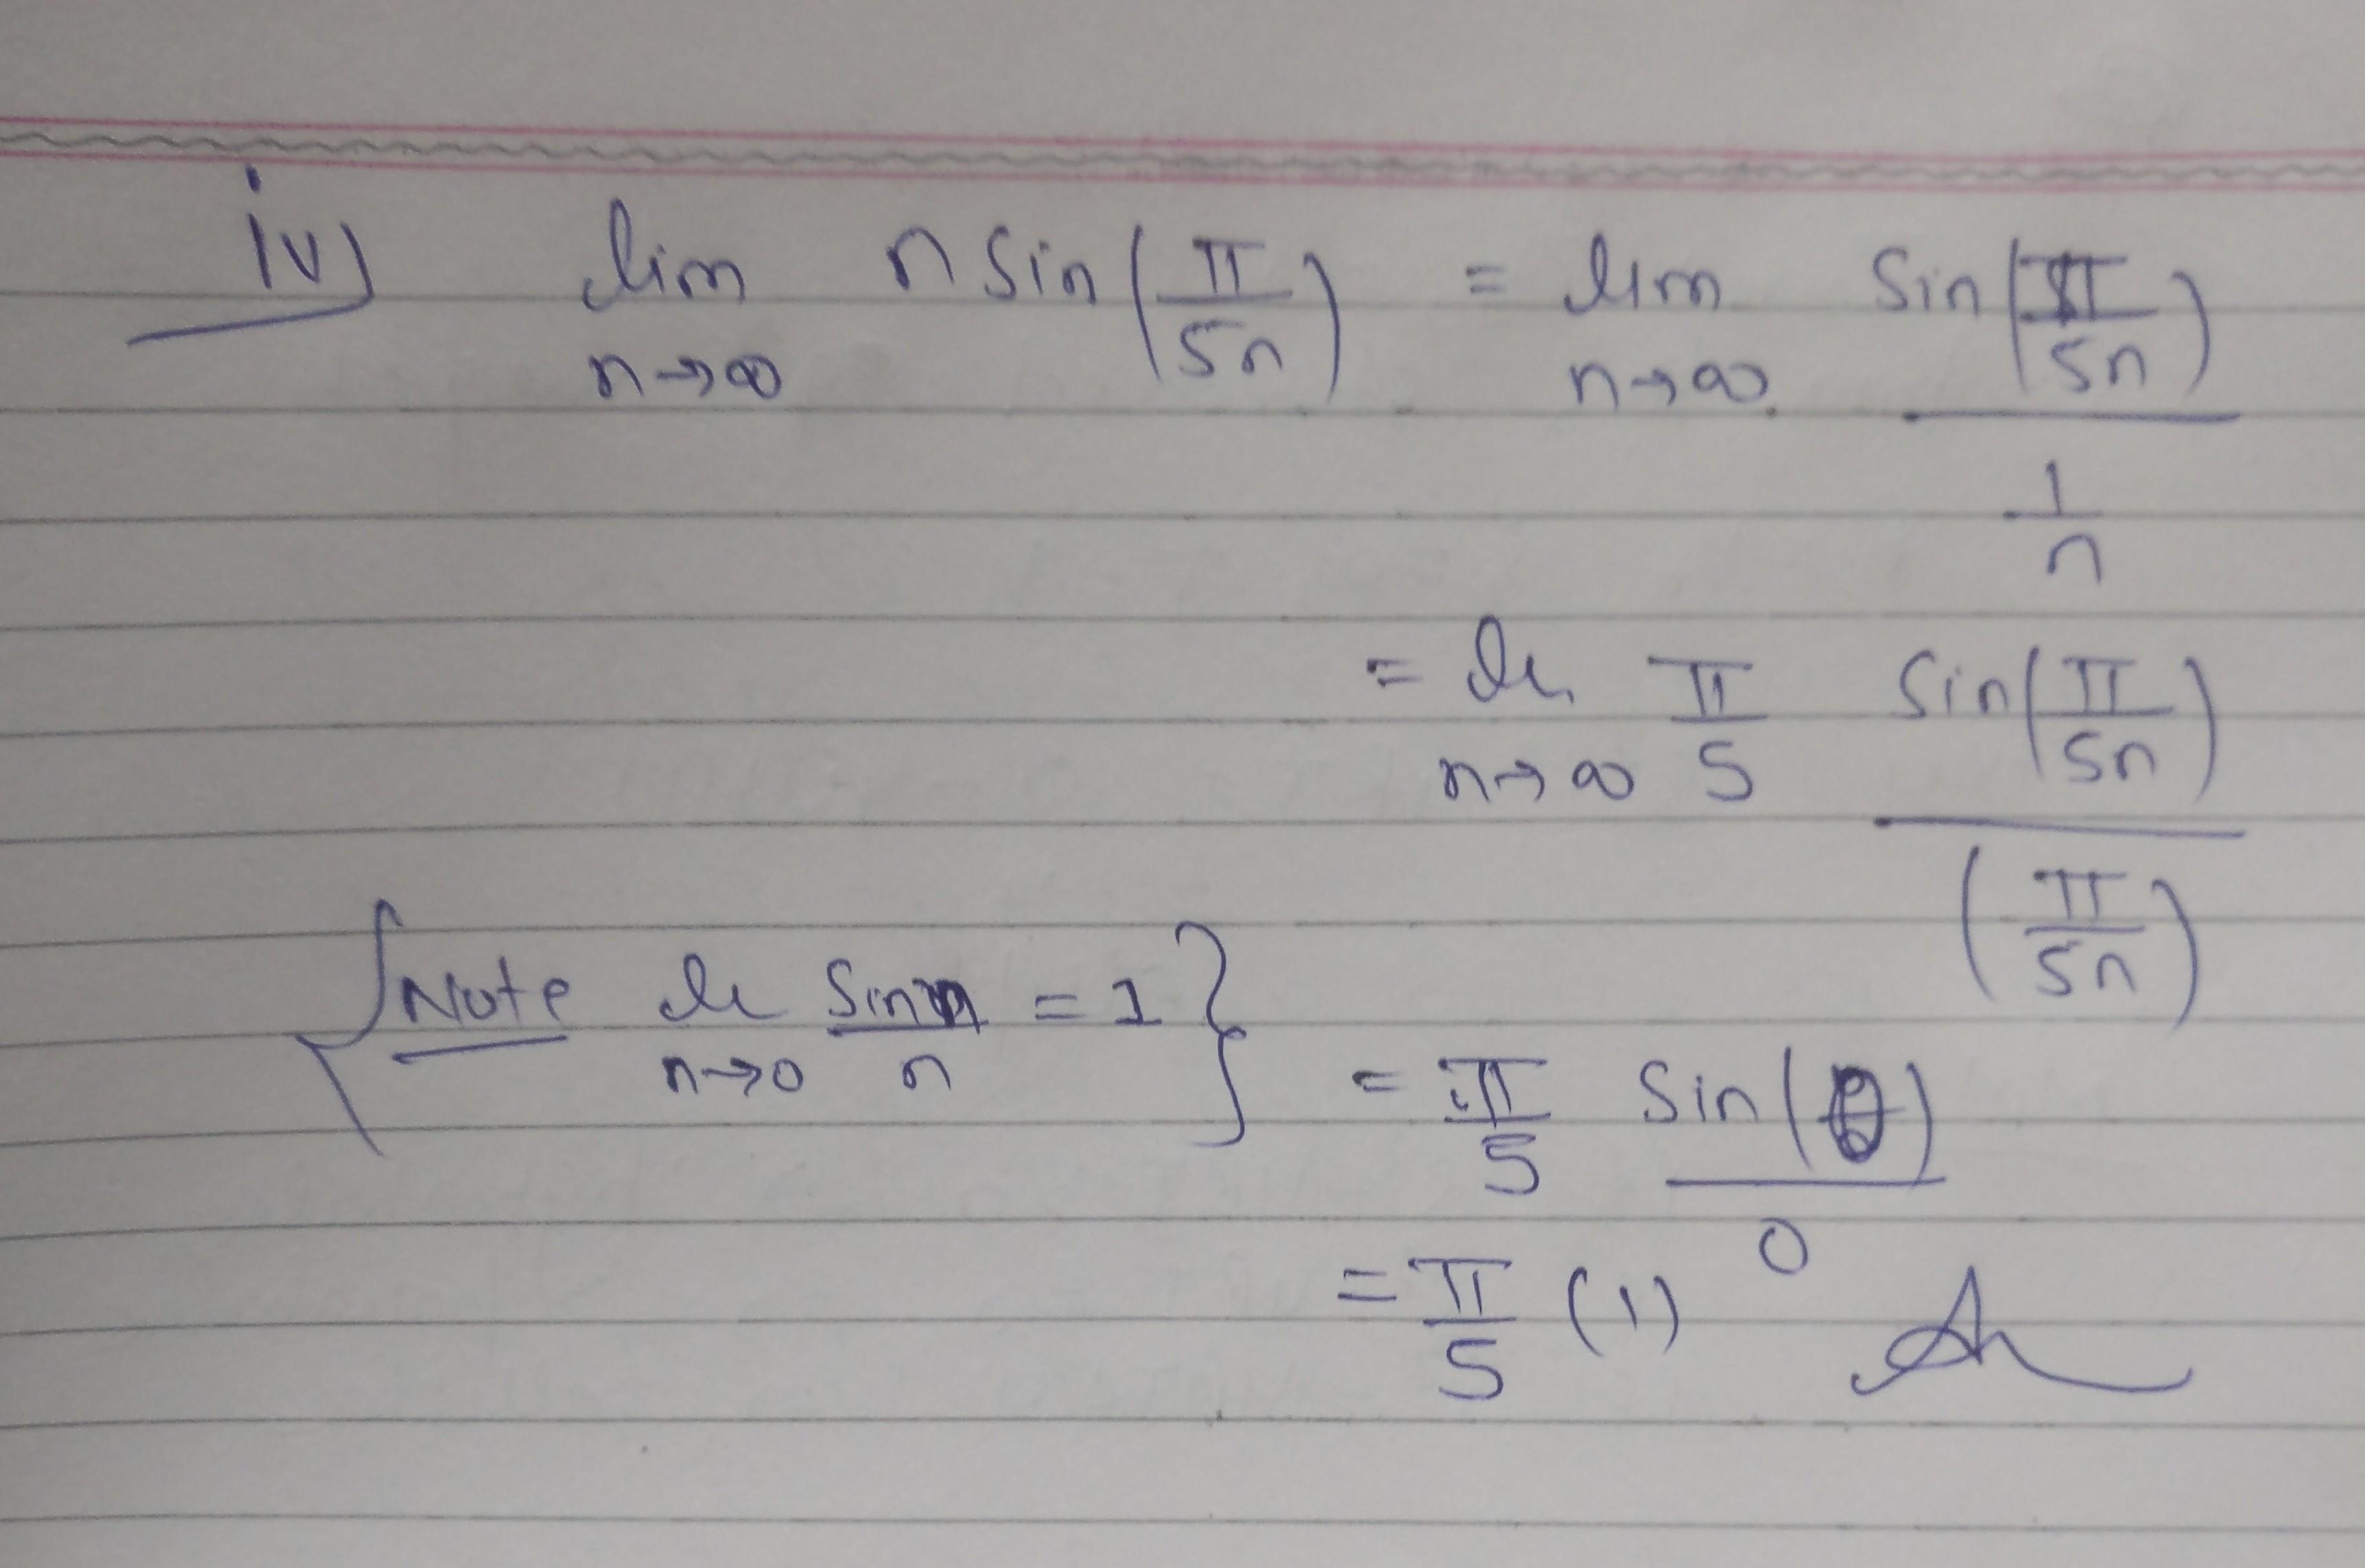 iv) lim n→∞ n Sin(π/5n) = lim n→∞ Sin(π/5n) / (1/n)
= lt n→∞ π/5 Sin(π/5n) / (π/5n)
{Note lt n→0 Sinn/n = 1}
= π/5 Sin(0)/0
= π/5 (1)